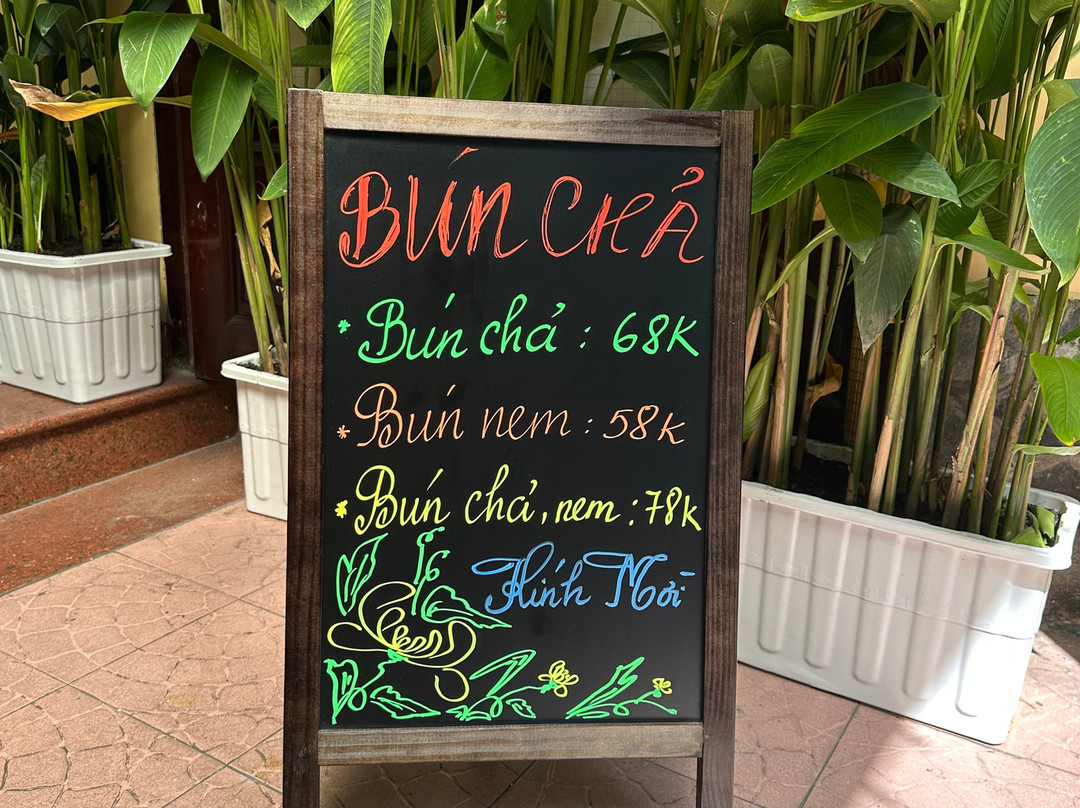 BÚN CHẢ
* Bún chả : 68K
* Bún nem : 58K
* Bún chả, nem : 78K
Kính Mời